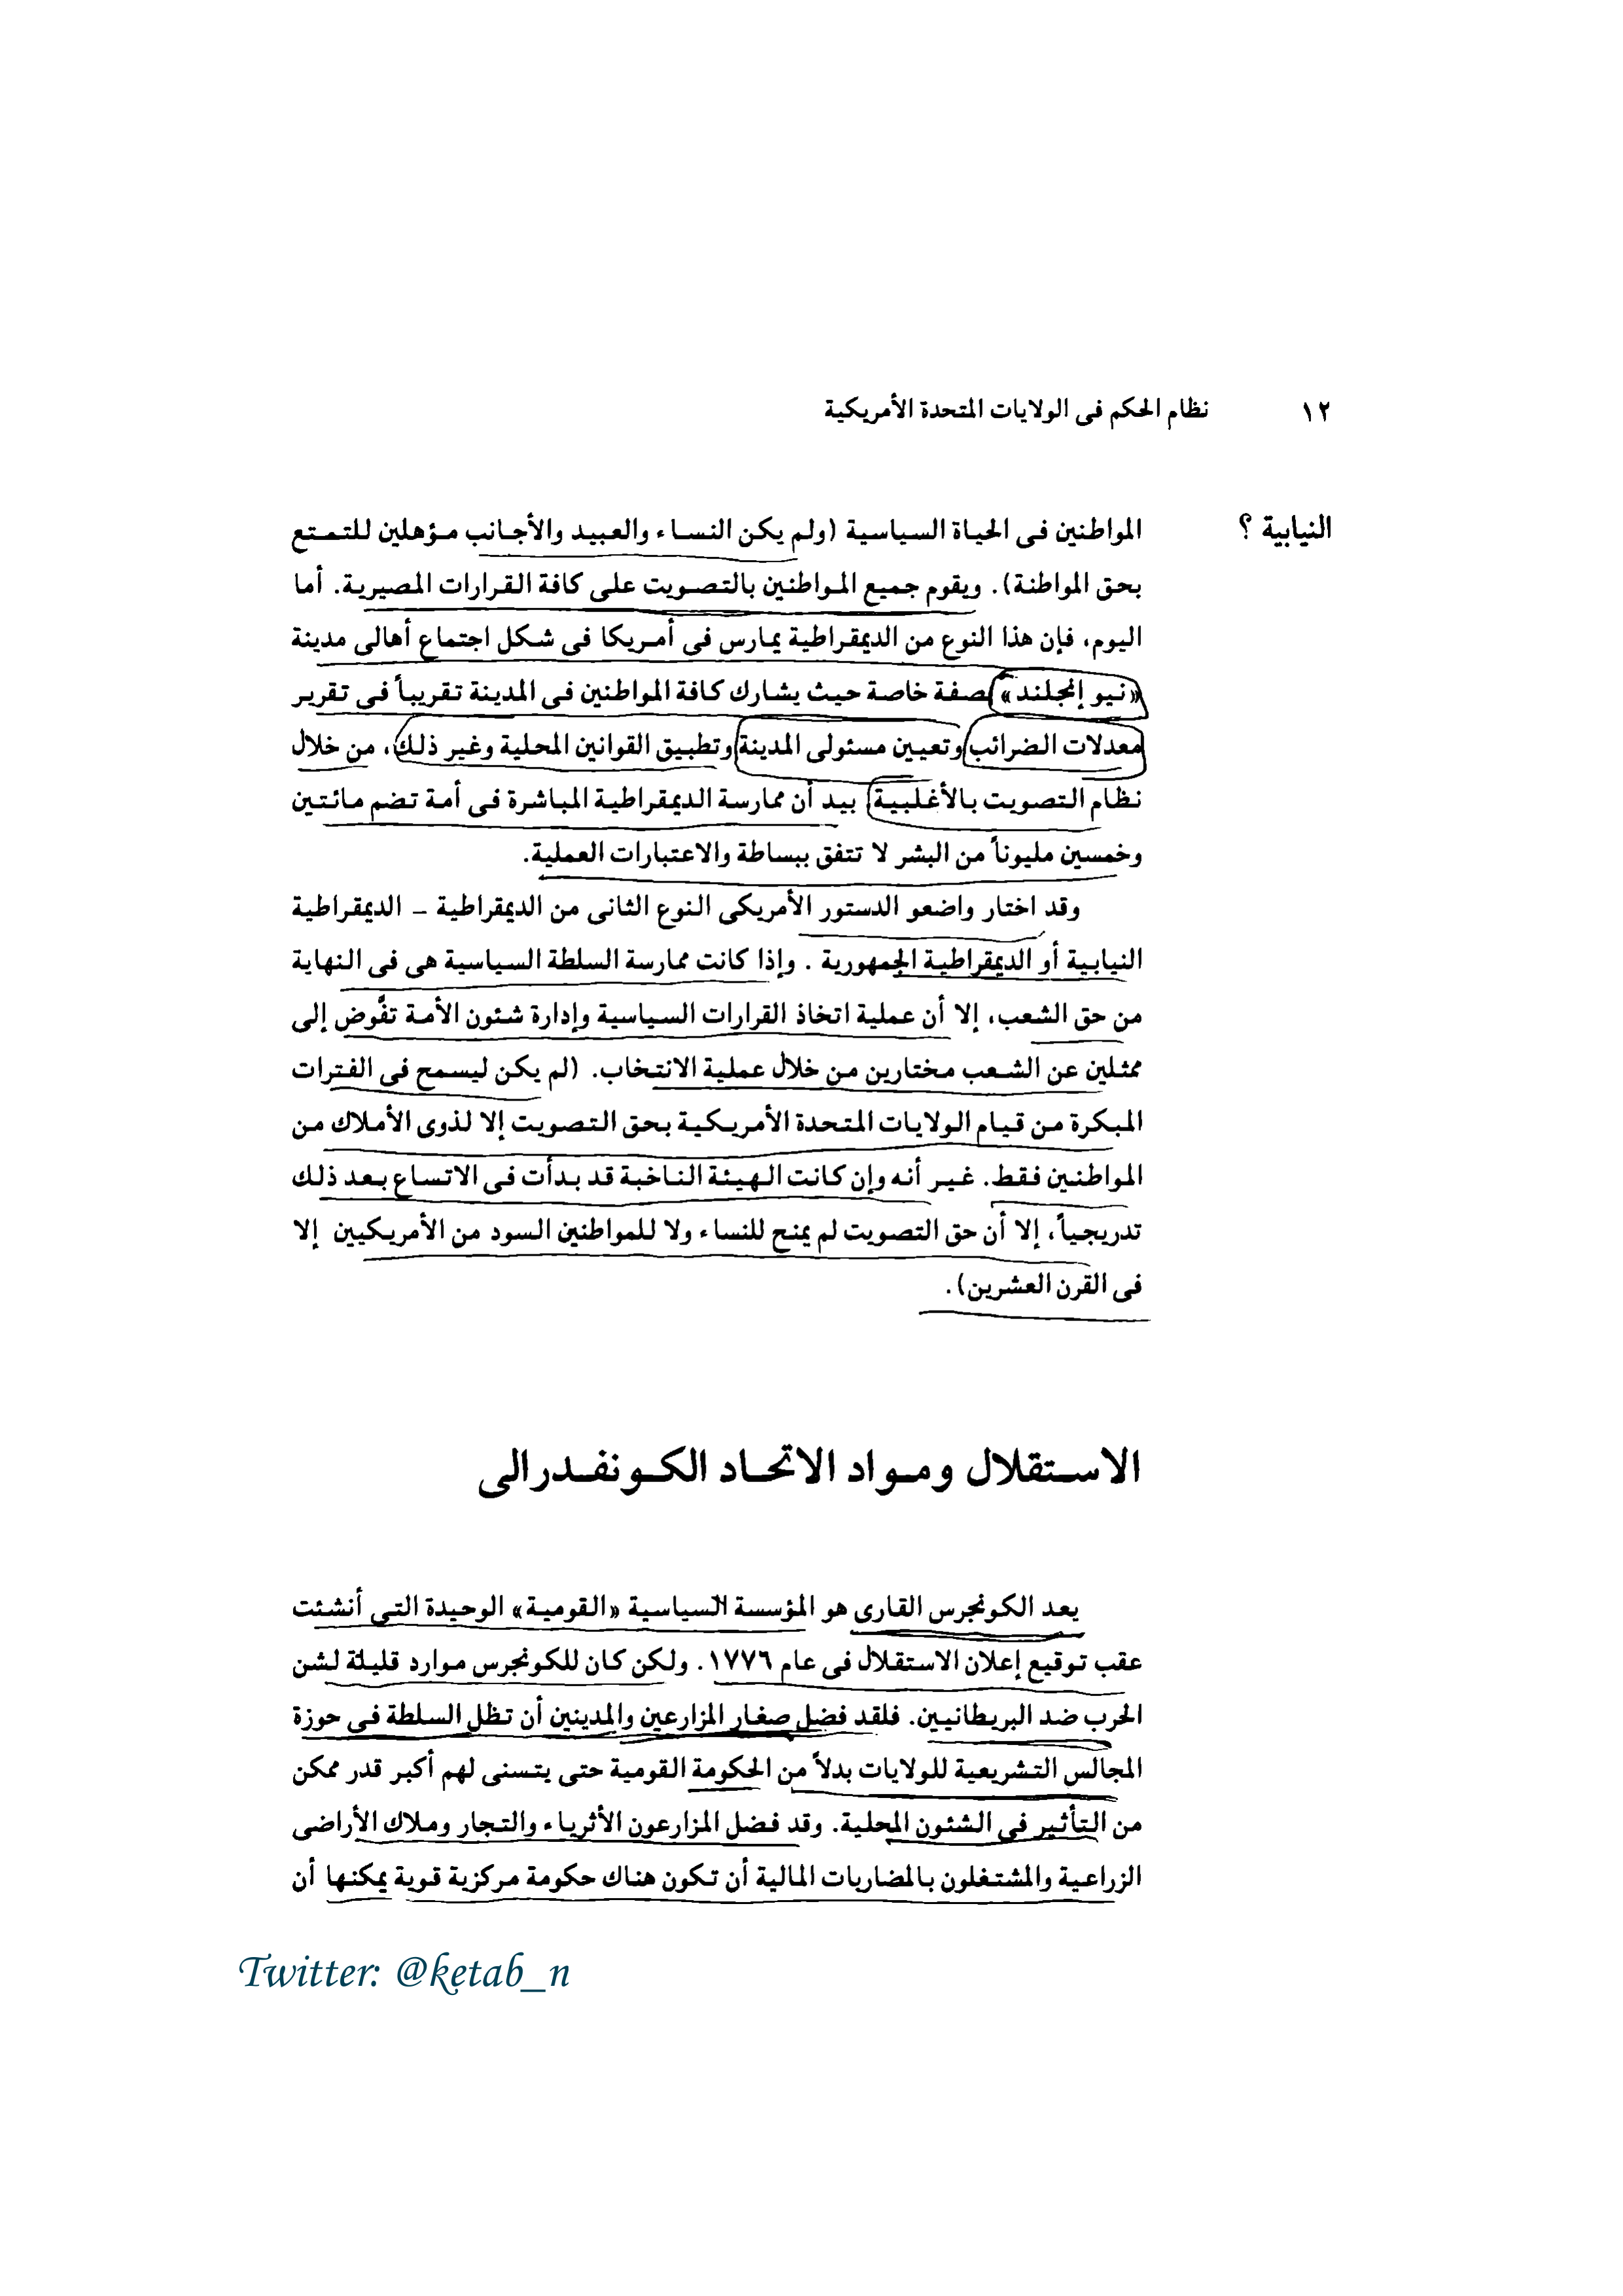 ١٢ نظام الحكم فى الولايات المتحدة الأمريكية
النيابية ؟
المواطنين فى الحياة السياسية (ولم يكن النساء والعبيد والأجانب مؤهلين للتمتع
بحق المواطنة). ويقوم جميع المواطنين بالتصويت على كافة القرارات المصيرية. أما
اليوم، فإن هذا النوع من الديمقراطية يمارس فى أمريكا فى شكل اجتماع أهالى مدينة
«نيو إنجلند» بصفة خاصة حيث يشارك كافة المواطنين فى المدينة تقريباً فى تقرير
معدلات الضرائب وتعيين مسئولى المدينة وتطبيق القوانين المحلية وغير ذلك، من خلال
نظام التصويت بالأغلبية، بيد أن ممارسة الديمقراطية المباشرة فى أمة تضم مائتين
وخمسين مليوناً من البشر لا تتفق ببساطة والاعتبارات العملية.
وقد اختار واضعو الدستور الأمريكى النوع الثانى من الديمقراطية – الديمقراطية
النيابية أو الديمقراطية الجمهورية . وإذا كانت ممارسة السلطة السياسية هى فى النهاية
من حق الشعب، إلا أن عملية اتخاذ القرارات السياسية وإدارة شئون الأمة تفُوض إلى
ممثلين عن الشعب مختارين من خلال عملية الانتخاب. (لم يكن ليسمح فى الفترات
المبكرة من قيام الولايات المتحدة الأمريكية بحق التصويت إلا لذوى الأملاك من
المواطنين فقط. غير أنه وإن كانت الهيئة الناخبة قد بدأت فى الاتساع بعد ذلك
تدريجياً، إلا أن حق التصويت لم يمنح للنساء ولا للمواطنين السود من الأمريكيين إلا
فى القرن العشرين).
الاستقلال ومواد الاتحاد الكونفدرالى
يعد الكونجرس القارى هو المؤسسة السياسية «القومية» الوحيدة التى أنشئت
عقب توقيع إعلان الاستقلال فى عام ١٧٧٦. ولكن كان للكونجرس موارد قليلة لشن
الحرب ضد البريطانيين. فلقد فضل صغار المزارعين والمدينين أن تظل السلطة فى حوزة
المجالس التشريعية للولايات بدلاً من الحكومة القومية حتى يتسنى لهم أكبر قدر ممكن
من التأثير فى الشئون المحلية. وقد فضل المزارعون الأثرياء والتجار وملاك الأراضى
الزراعية والمشتغلون بالمضاربات المالية أن تكون هناك حكومة مركزية قوية يمكنها أن
Twitter: @ketab_n